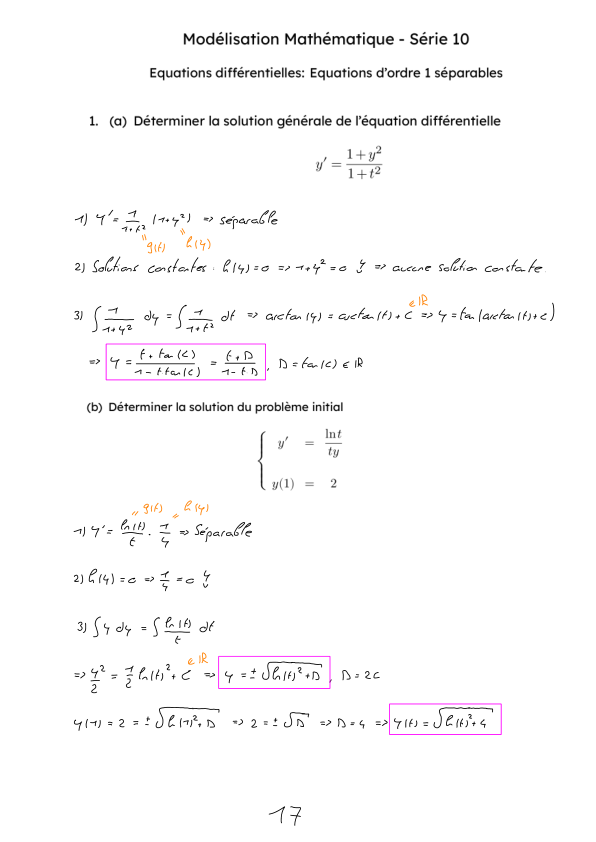 Modélisation Mathématique - Série 10
Equations différentielles: Equations d'ordre 1 séparables
1. (a) Déterminer la solution générale de l'équation différentielle
y′ = (1 + y²)/(1 + t²)
1) y' = 1/(1+t²) (1+y²) => séparable
" g(t) " h(y)
2) Solutions constantes : h(y)=0 => 1+y² = 0 ↯ => aucune solution constante.
3) ∫ 1/(1+y²) dy = ∫ 1/(1+t²) dt => arctan(y) = arctan(t) + C ∈ ℝ => y = tan(arctan(t)+c)
=> y = (t + tan(c))/(1 - t tan(c)) = (t + D)/(1 - t D), D = tan(c) ∈ ℝ
(b) Déterminer la solution du problème initial
{ y′ = ln t/(ty)
y(1) = 2
" g(t) " h(y)
1) y' = ln(t)/t · 1/y => Séparable
2) h(y) = 0 => 1/y = 0 ↯
3) ∫ y dy = ∫ ln(t)/t dt
=> y²/2 = 1/2 ln(t)² + C ∈ ℝ => y = ± √(ln(t)² + D), D = 2C
y(1) = 2 = ± √(ln(1)² + D) => 2 = ± √D => D = 4 => y(t) = √(ln(t)² + 4)
17